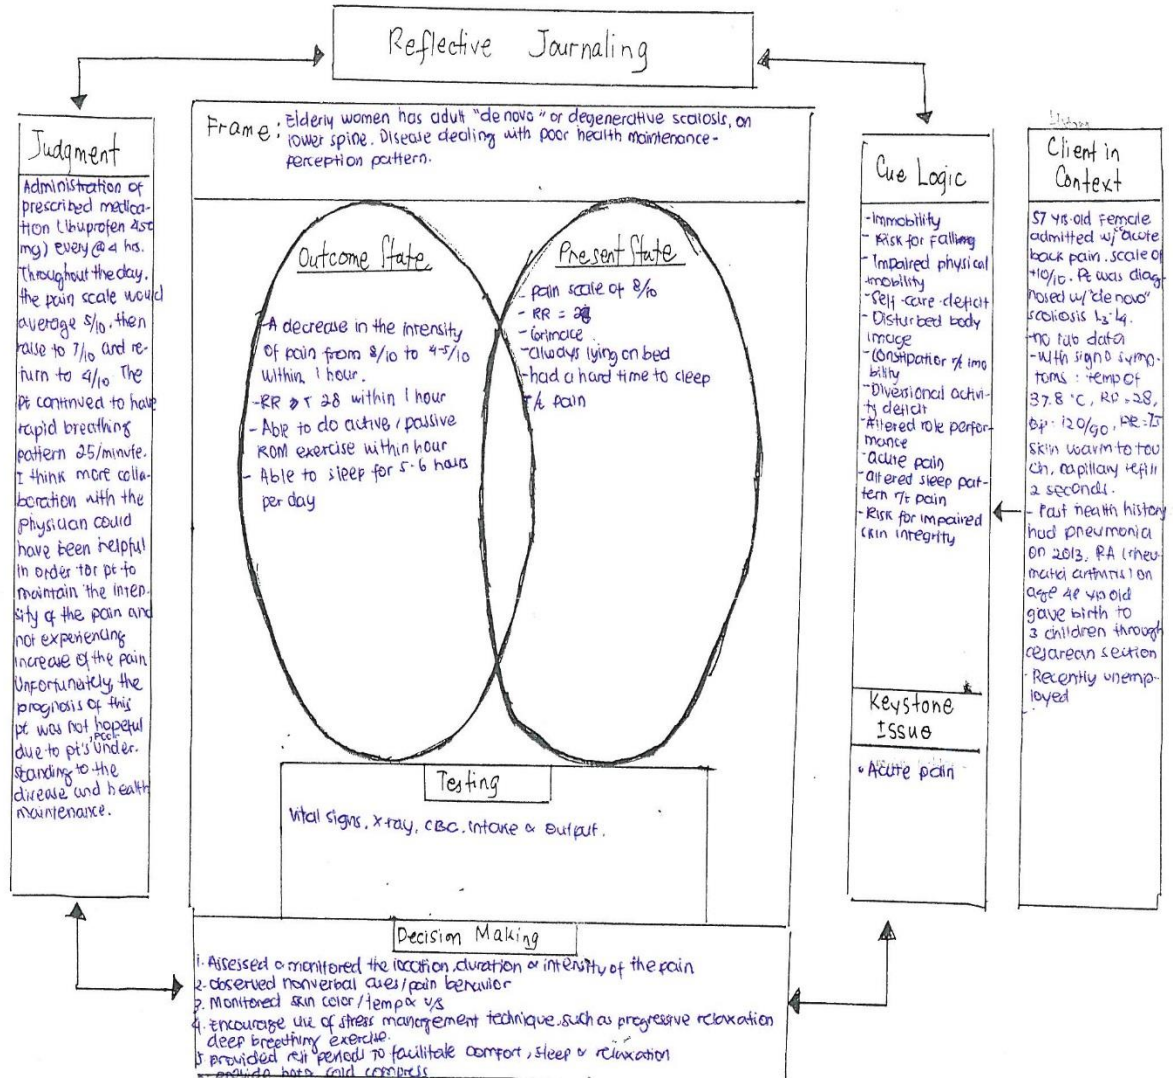 Reflective Journaling
Judgment
Administration of
prescribed medica-
tion (Ibuprofen 450
mg) every @ 4 hrs.
Throughout the day,
the pain scale would
average 5/10, then
raise to 7/10 and re-
turn to 4/10 The
pt continued to have
rapid breathing
pattern 25/minute.
I think more colla-
boration with the
physician could
have been helpful
in order for pt to
maintain the inten-
sity of the pain and
not experiencing
increase of the pain
Unfortunately, the
prognosis of this
pt was not hopeful
due to pt's poor under-
standing to the
disease and health
maintenance.
Frame: Elderly women has adult "de novo" or degenerative scoliosis, on
lower spine. Disease dealing with poor health maintenance-
perception pattern.
Outcome State
- A decrease in the intensity
of pain from 8/10 to 4-5/10
within 1 hour.
- RR 28 within 1 hour
- Able to do active/passive
ROM exercise within hour
- Able to sleep for 5-6 hours
per day
Present State
- pain scale of 8/10
- RR = 28
- Grimace
- always lying on bed
- had a hard time to sleep
r/t pain
Testing
Vital signs, x-ray, CBC, intake & output.
Decision Making
1. Assessed & monitored the location, duration & intensity of the pain
2. observed nonverbal cues/pain behavior
3. Monitored skin color/temp & v/s
4. Encourage use of stress management technique, such as progressive relaxation
deep breathing exercise.
5 provided rest periods to facilitate comfort, sleep & relaxation
provide both cold compress
Cue Logic
- Immobility
- Risk for Falling
- Impaired physical
mobility
- Self-care deficit
- Disturbed body
image
- Constipation r/t immo
bility
- Diversional activi-
ty deficit
- Altered role perfor-
mance
- acute pain
- altered sleep pat-
tern r/t pain
- Risk for impaired
skin integrity
Keystone
Issue
• Acute pain
Client in
Context
57 yrs old Female
admitted w/ acute
back pain. scale of
10/10. Pt was diag-
nosed w/ "de novo"
scoliosis L3-L4.
- no lab data
- with sign & symp-
toms: temp of
37.8 °C, RR = 28,
BP = 120/90, PR = 75
skin warm to tou
ch, capillary refill
2 seconds.
- Past health history
had pneumonia
on 2013, RA (rheu-
matoid arthritis) on
age yrs old
gave birth to
3 children through
cesarean section
- Recently unemp-
loyed